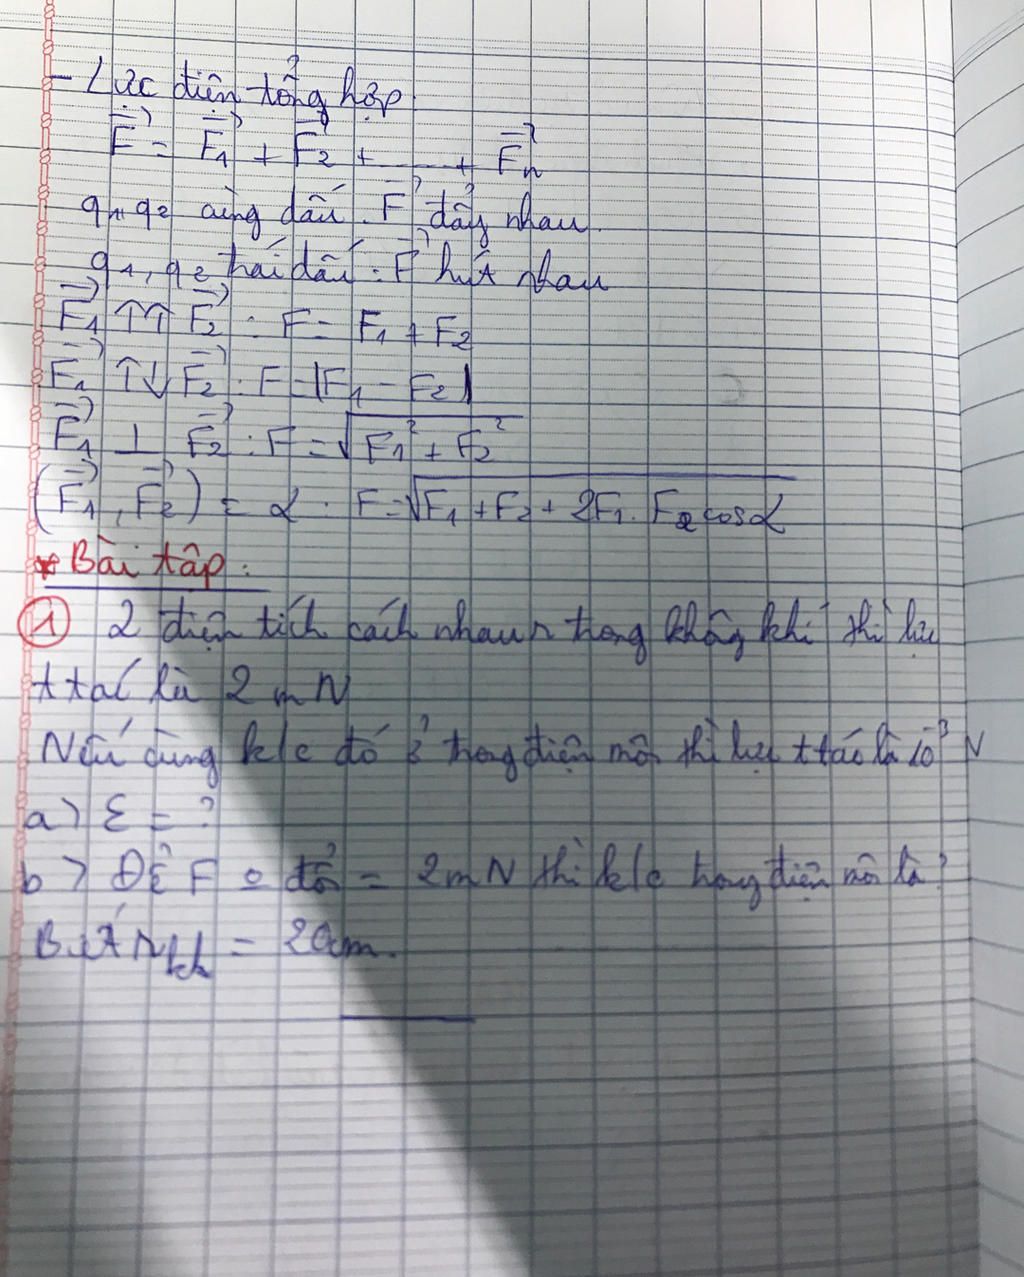 - Lực điện tổng hợp.
F⃗ = F⃗₁ + F⃗₂ + ...... + F⃗ₙ
q₁, q₂ cùng dấu : F⃗ đẩy nhau.
q₁, q₂ trái dấu : F⃗ hút nhau
F⃗₁ ↑↑ F⃗₂ : F = F₁ + F₂
F⃗₁ ↑↓ F⃗₂ : F = |F₁ - F₂|
F⃗₁ ⊥ F⃗₂ : F = √(F₁² + F₂²)
(F⃗₁, F⃗₂) = α : F = √(F₁ + F₂ + 2F₁. F₂ cosα)
* Bài tập :
① 2 điện tích cách nhau r trong không khí thì lực
t tác là 2 mN
Nếu cùng k/c đó ở trong điện môi thì lực t tác là 10⁻³ N
a) ε = ?
b) Để F o đổi = 2mN thì k/c trong điện môi là?
Biết r_kk = 20cm.